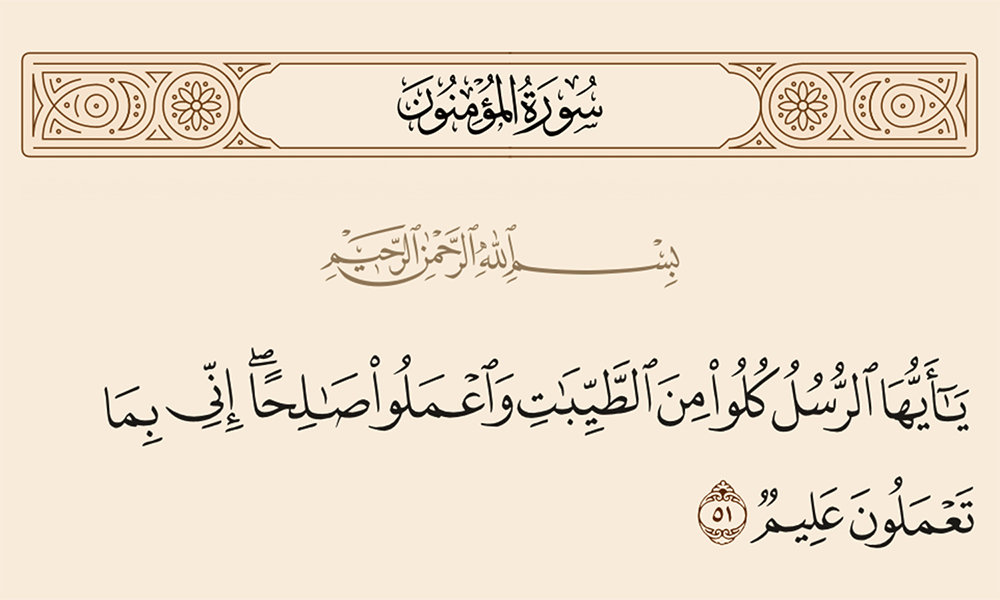 سُورَةُ المُؤْمِنُونَ
بِسْمِ ٱللَّهِ ٱلرَّحْمَٰنِ ٱلرَّحِيمِ
يَٰٓأَيُّهَا ٱلرُّسُلُ كُلُوا۟ مِنَ ٱلطَّيِّبَٰتِ وَٱعْمَلُوا۟ صَٰلِحًا ۖ إِنِّى بِمَا
تَعْمَلُونَ عَلِيمٌ ٥١